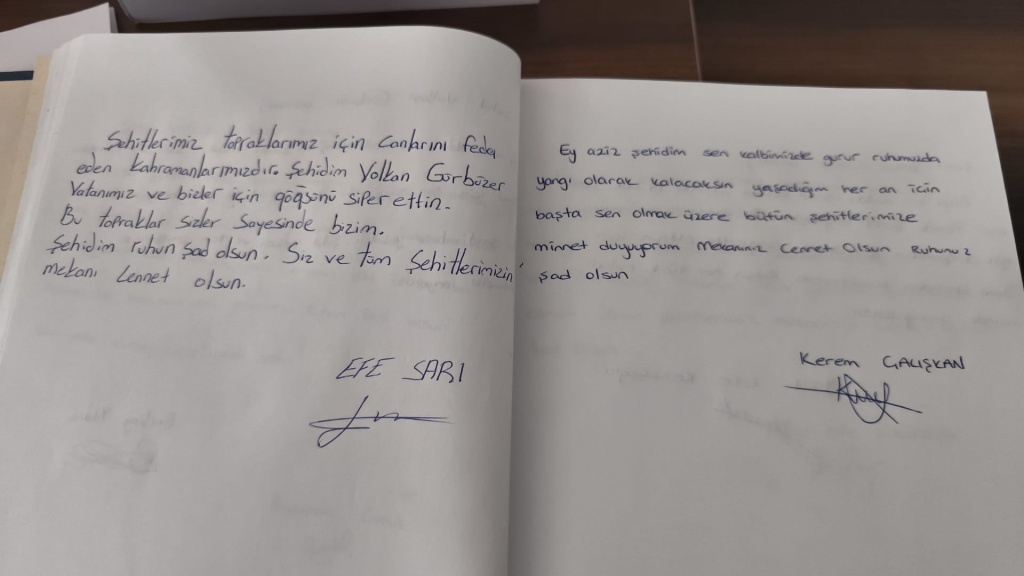 Şehitlerimiz topraklarımız için canlarını feda
eden kahramanlarımızdır. Şehidim Volkan Gürbüzer
Vatanımız ve bizler için göğsünü siper ettin.
Bu topraklar sizler sayesinde bizim.
Şehidim ruhun şad olsun. Siz ve tüm Şehitlerimizin
mekanı Cennet olsun.
EFE SARI
Ey aziz şehidim sen kalbimizde gurur ruhumuzda
yangı olarak kalacaksın yaşadığım her an için
başta sen olmak üzere bütün şehitlerimize
minnet duyuyorum Mekanınız Cennet Olsun Ruhunuz
şad olsun
Kerem ÇALIŞKAN